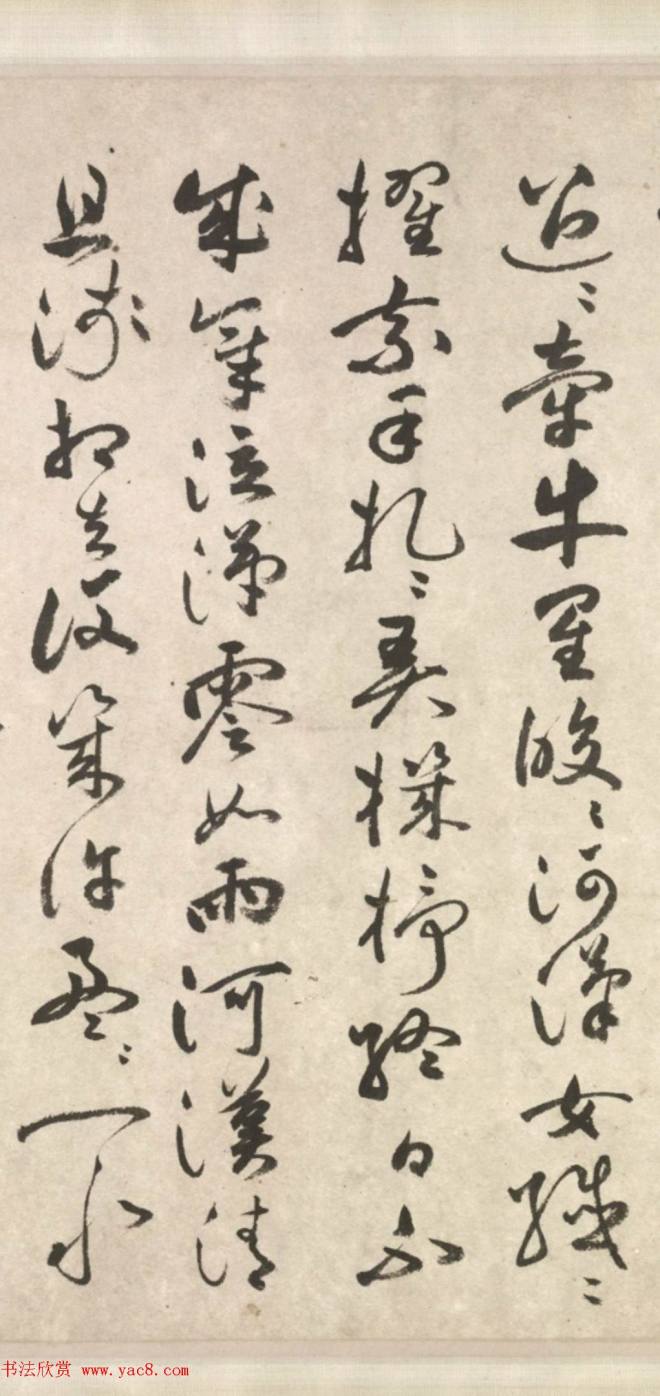 迢〻牽牛星皎〻河漢女纖〻
擢素手札〻弄機杼終日不
成章泣涕零如雨河漢清
且淺相去復幾許盈〻一水
书法欣赏 www.yac8.com